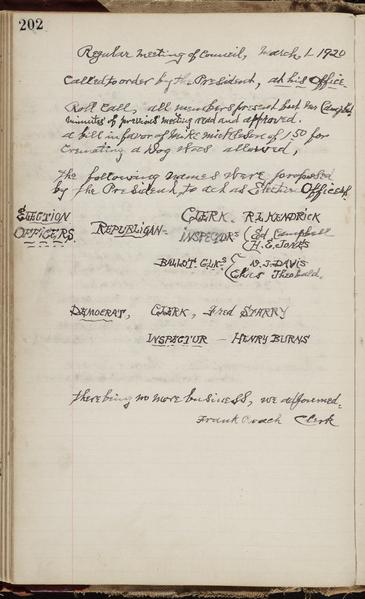 202
Regular meeting of Council, March 1- 1920
Called to order by the President, at his Office
Roll Call, all members present but Mr Campbell
minutes of previous meeting read and approved.
a bill in favor of Mike of 1 50 for
a Dog was allowed,
the following names were proposed
by the President, to act as Election Officers.
ELECTION OFFICERS. REPUBLICAN - CLERK - R.L. KENDRICK
INSPECTORS (Ed Campbell
(H.E. JONES
BALLOT CLKS (D.J. DAVIS
(Chas Theobald.
DEMOCRAT, CLERK, Fred STARRY
INSPECTOR - HENRY BURNS
there being no more business, we adjorned.
Frank Roach Clerk